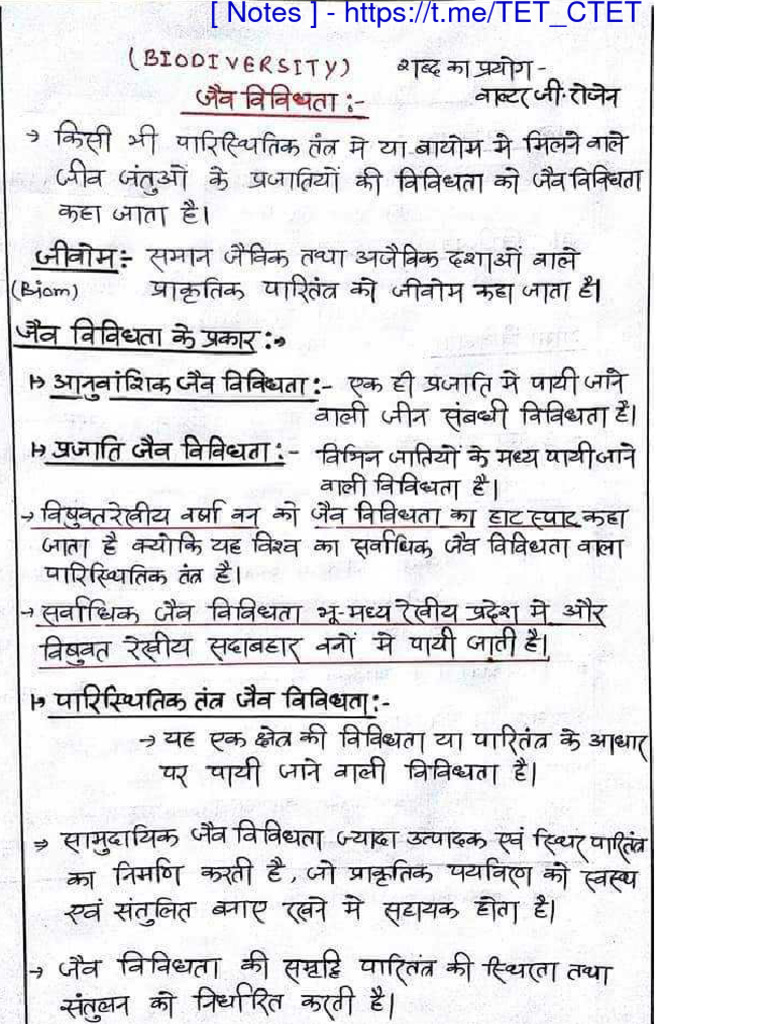 [ Notes ] - https://t.me/TET_CTET
(BIODIVERSITY) शब्द का प्रयोग -
जैव विविधता :- वाल्टर जी. रोजेन
→ किसी भी पारिस्थितिक तंत्र मे या बायोम मे मिलने वाले
जीव जंतुओं के प्रजातियों की विविधता को जैव विविधता
कहा जाता है।
जीवोम :- समान जैविक तथा अजैविक दशाओं वाले
(Biom) प्राकृतिक पारितंत्र को जीवोम कहा जाता है।
जैव विविधता के प्रकार :→
↦ आनुवांशिक जैव विविधता :- एक ही प्रजाति मे पायी जाने
वाली जीन संबधी विविधता है।
↦ प्रजाति जैव विविधता :- विभिन जातियों के मध्य पायी जाने
वाली विविधता है।
→ विषुवतरेखीय वर्षा वन को जैव विविधता का हाट स्पाट कहा
जाता है क्योकि यह विश्व का सर्वाधिक जैव विविधता वाला
पारिस्थितिक तंत्र है।
→ सर्वाधिक जैव विविधता भू-मध्य रेखीय प्रदेश मे और
विषुवत रेखीय सदाबहार वनों मे पायी जाती है।
↦ पारिस्थितिक तंत्र जैव विविधता :-
→ यह एक क्षेत्र की विविधता या पारितंत्र के आधार
पर पायी जाने वाली विविधता है।
⇒ सामुदायिक जैव विविधता ज्यादा उत्पादक एवं स्थिर पारितंत्र
का निर्माण करती है, जो प्राकृतिक पर्यावरण को स्वस्थ
एवं संतुलित बनाए रखने मे सहायक होता है।
→ जैव विविधता की समृद्दि पारितंत्र की स्थिरता तथा
संतुलन को निर्धारित करती है।